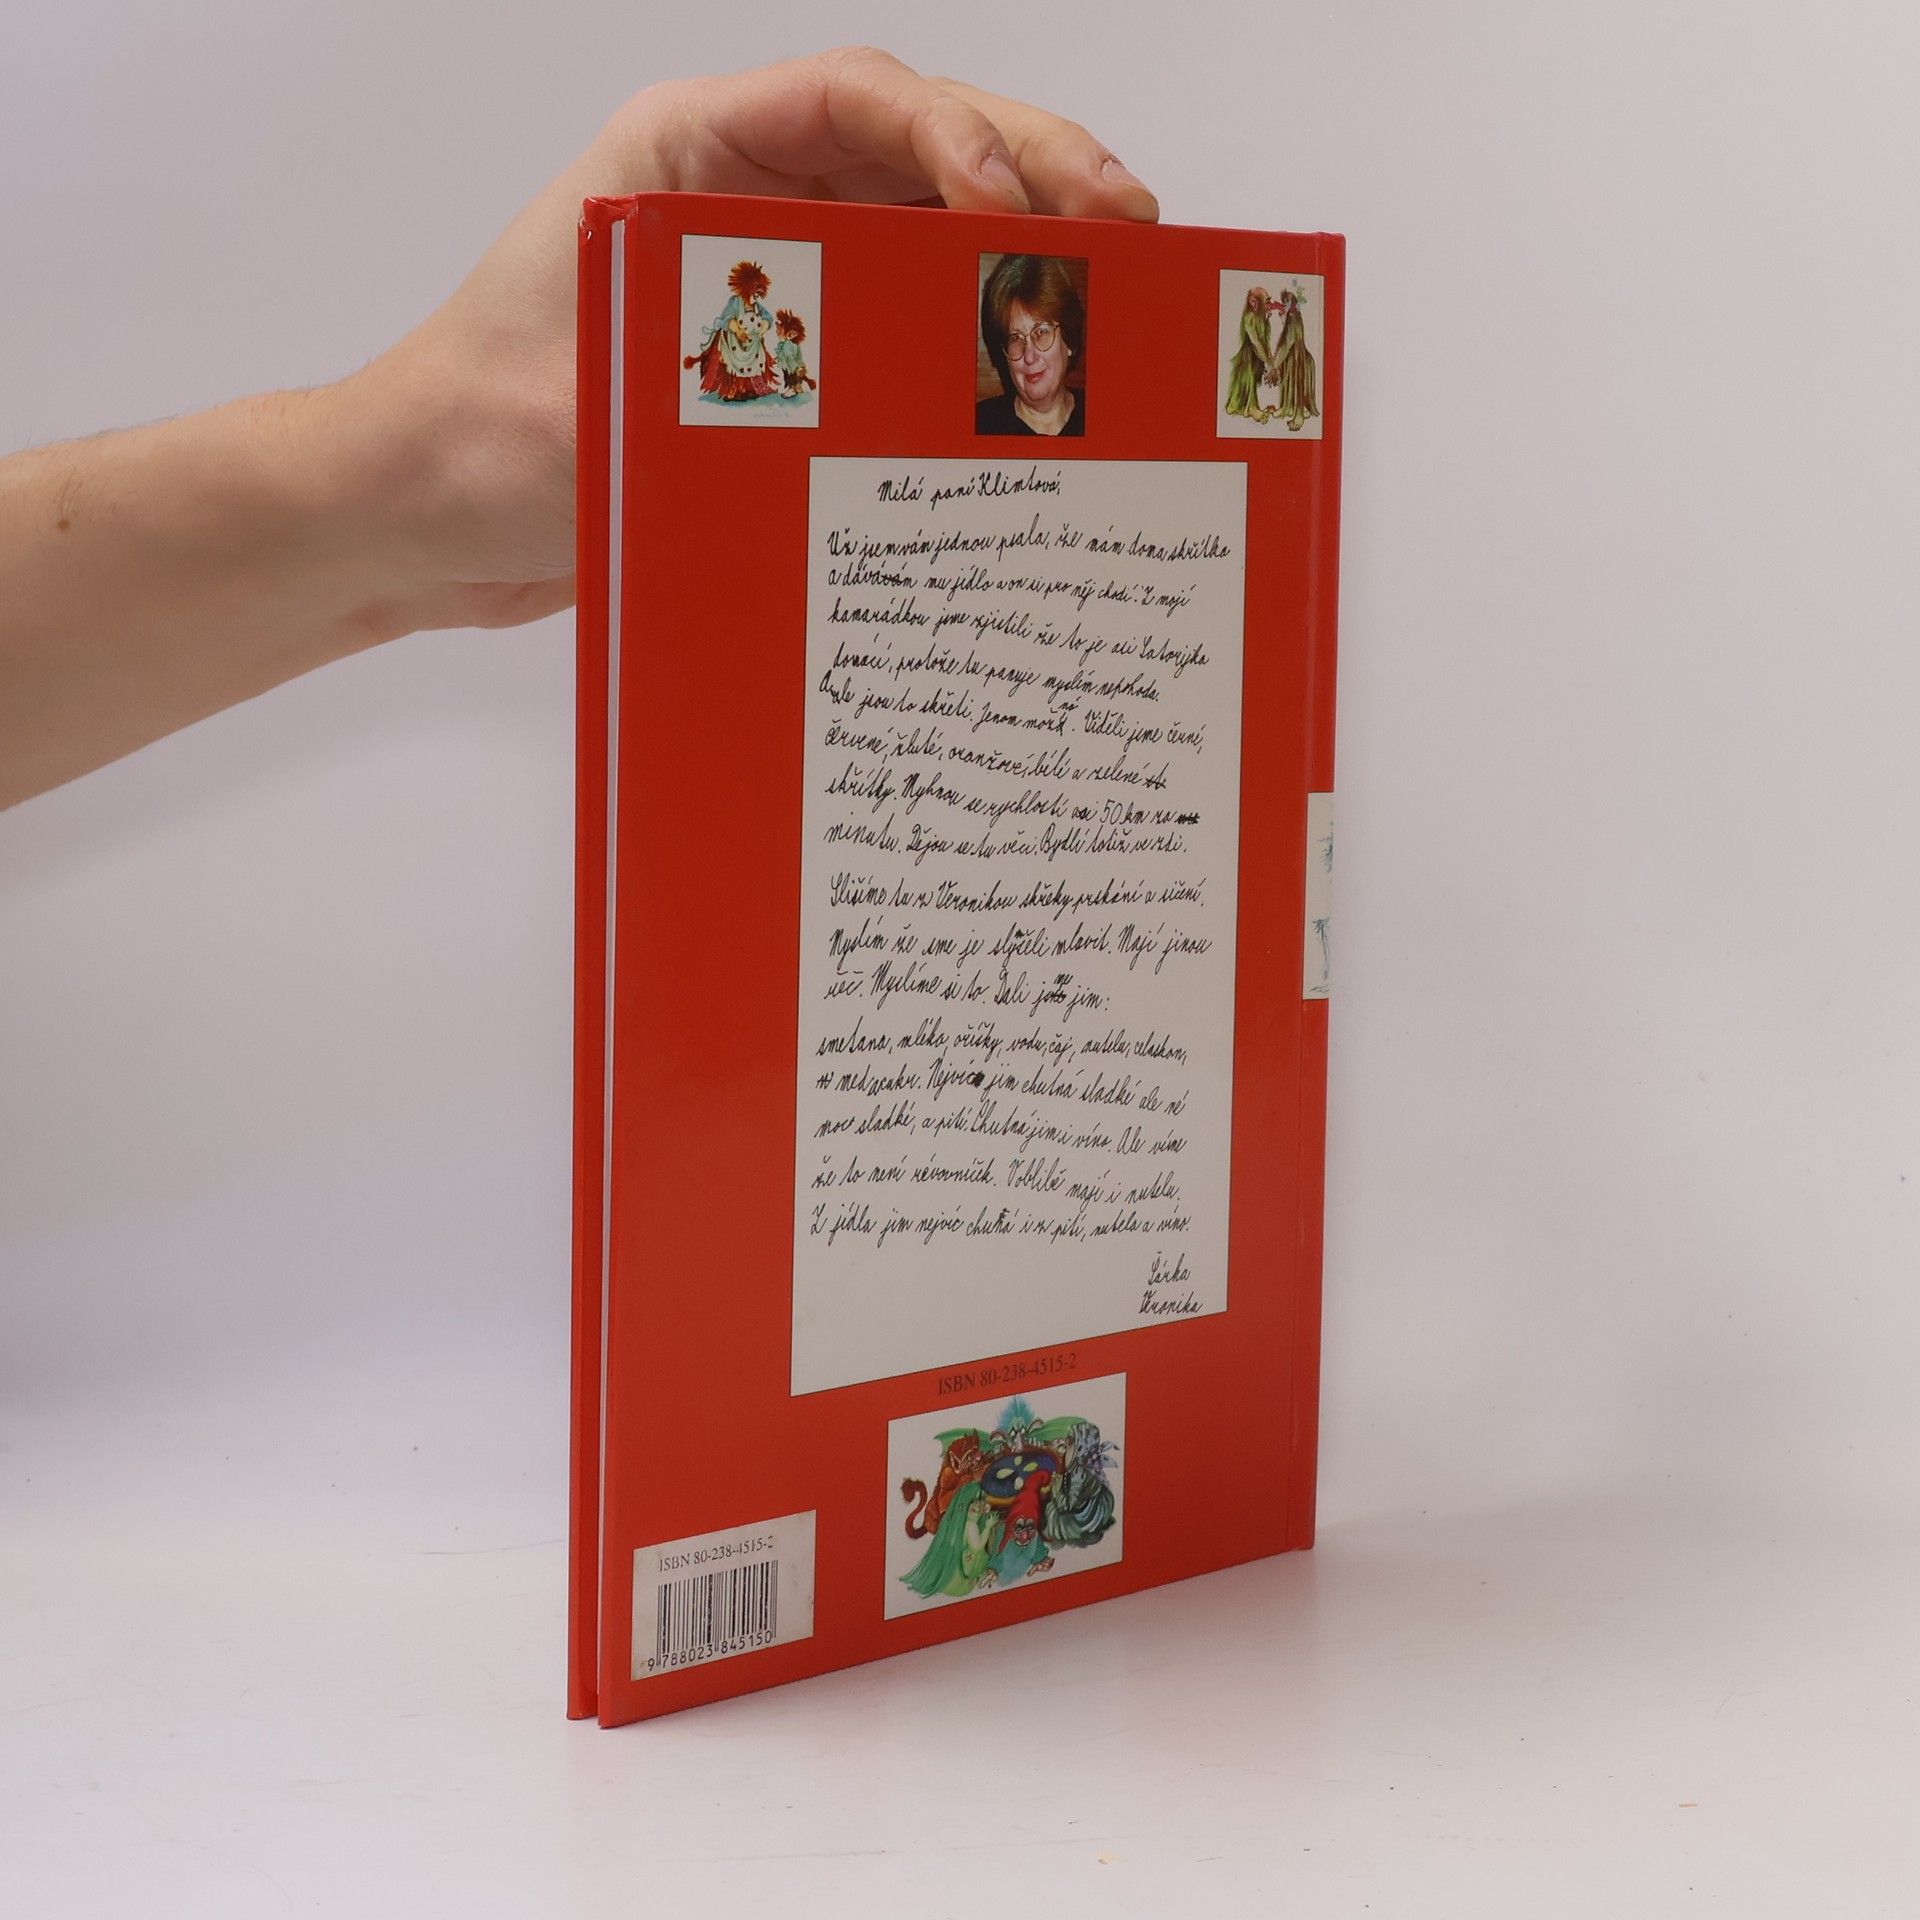 Milá paní Klimtová,
Už jsem vám jednou psala, že mám doma skřítka
a dávávám mu jídlo a on si pro něj chodí. Z mojí
kamarádkou jsme zjistili že to je asi Satorijka
domácí, protože tu panuje myslím nepohoda.
Ale jsou to skřeti. Jenom možná. Viděli jsme černé,
červené, žluté, oranžové, bílé a zelené
skřítky. Myhnou se rychlostí asi 50 km za
minutu. Dějou se tu věci. Bydlí totiž ve zdi.
Slišíme tu z Veronikou skřeky prskání a sičení.
Myslím že sme je slyšeli mlavit. Mají jinou
řeč. Myslíme si to. Dali jsme jim:
smetana, mléko, oříšky, vodu, čaj, nutelu, celaskon,
med a cukr. Nejvíc jim chutná sladké ale né
moc sladké, a pití. Chutná jim i víno. Ale víme
že to není révovníček. Voblibě mají i nutelu.
Z jídla jim nejvíc chutná i z pití, nutela a víno.
Šárka
Veronika
ISBN 80-238-4515-2
ISBN 80-238-4515-2
9 788023 845150